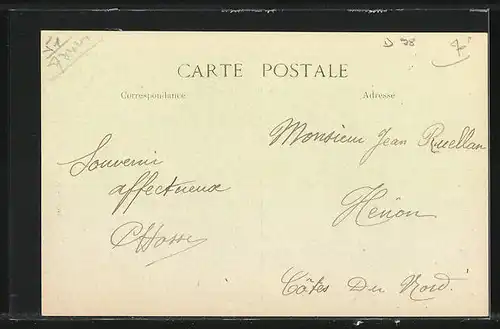 D 78
7
CARTE POSTALE
Correspondance
Adresse
Souvenir
affectueux
Monsieur Jean Ruellan
Hénon
Côtes Du Nord.